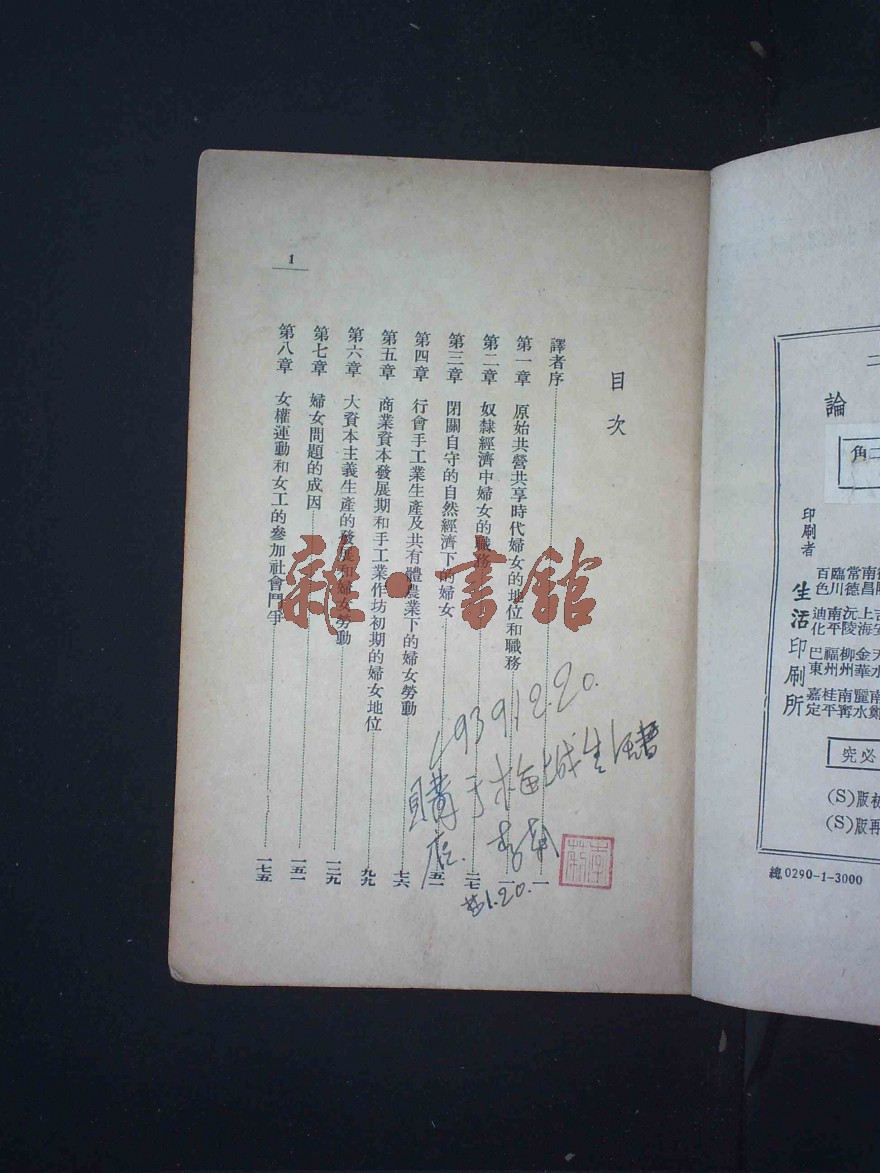 目次
譯者序 一
第一章 原始共營共享時代婦女的地位和職務 一
第二章 奴隸經濟中婦女的職務 二七
第三章 閉關自守的自然經濟下的婦女 五一
第四章 行會手工業生產及共有體農業下的婦女勞動 七六
第五章 商業資本發展期和手工業作坊初期的婦女地位 九九
第六章 大資本主義生產的發展和婦女勞動 一二九
第七章 婦女問題的成因 一五一
第八章 女權運動和女工的參加社會鬥爭 一七五
1
雜·書館
1939.12.20.
購于梅城生活書
店.
1.20.
論
二角
印刷者
生活印刷所
百色
迪化
巴東
嘉定
臨川
南平
福州
南平
常德
沅陵
柳州
桂
南昌
上海
金華
麗水
究必
(S)版
(S)版再
總 0290-1-3000